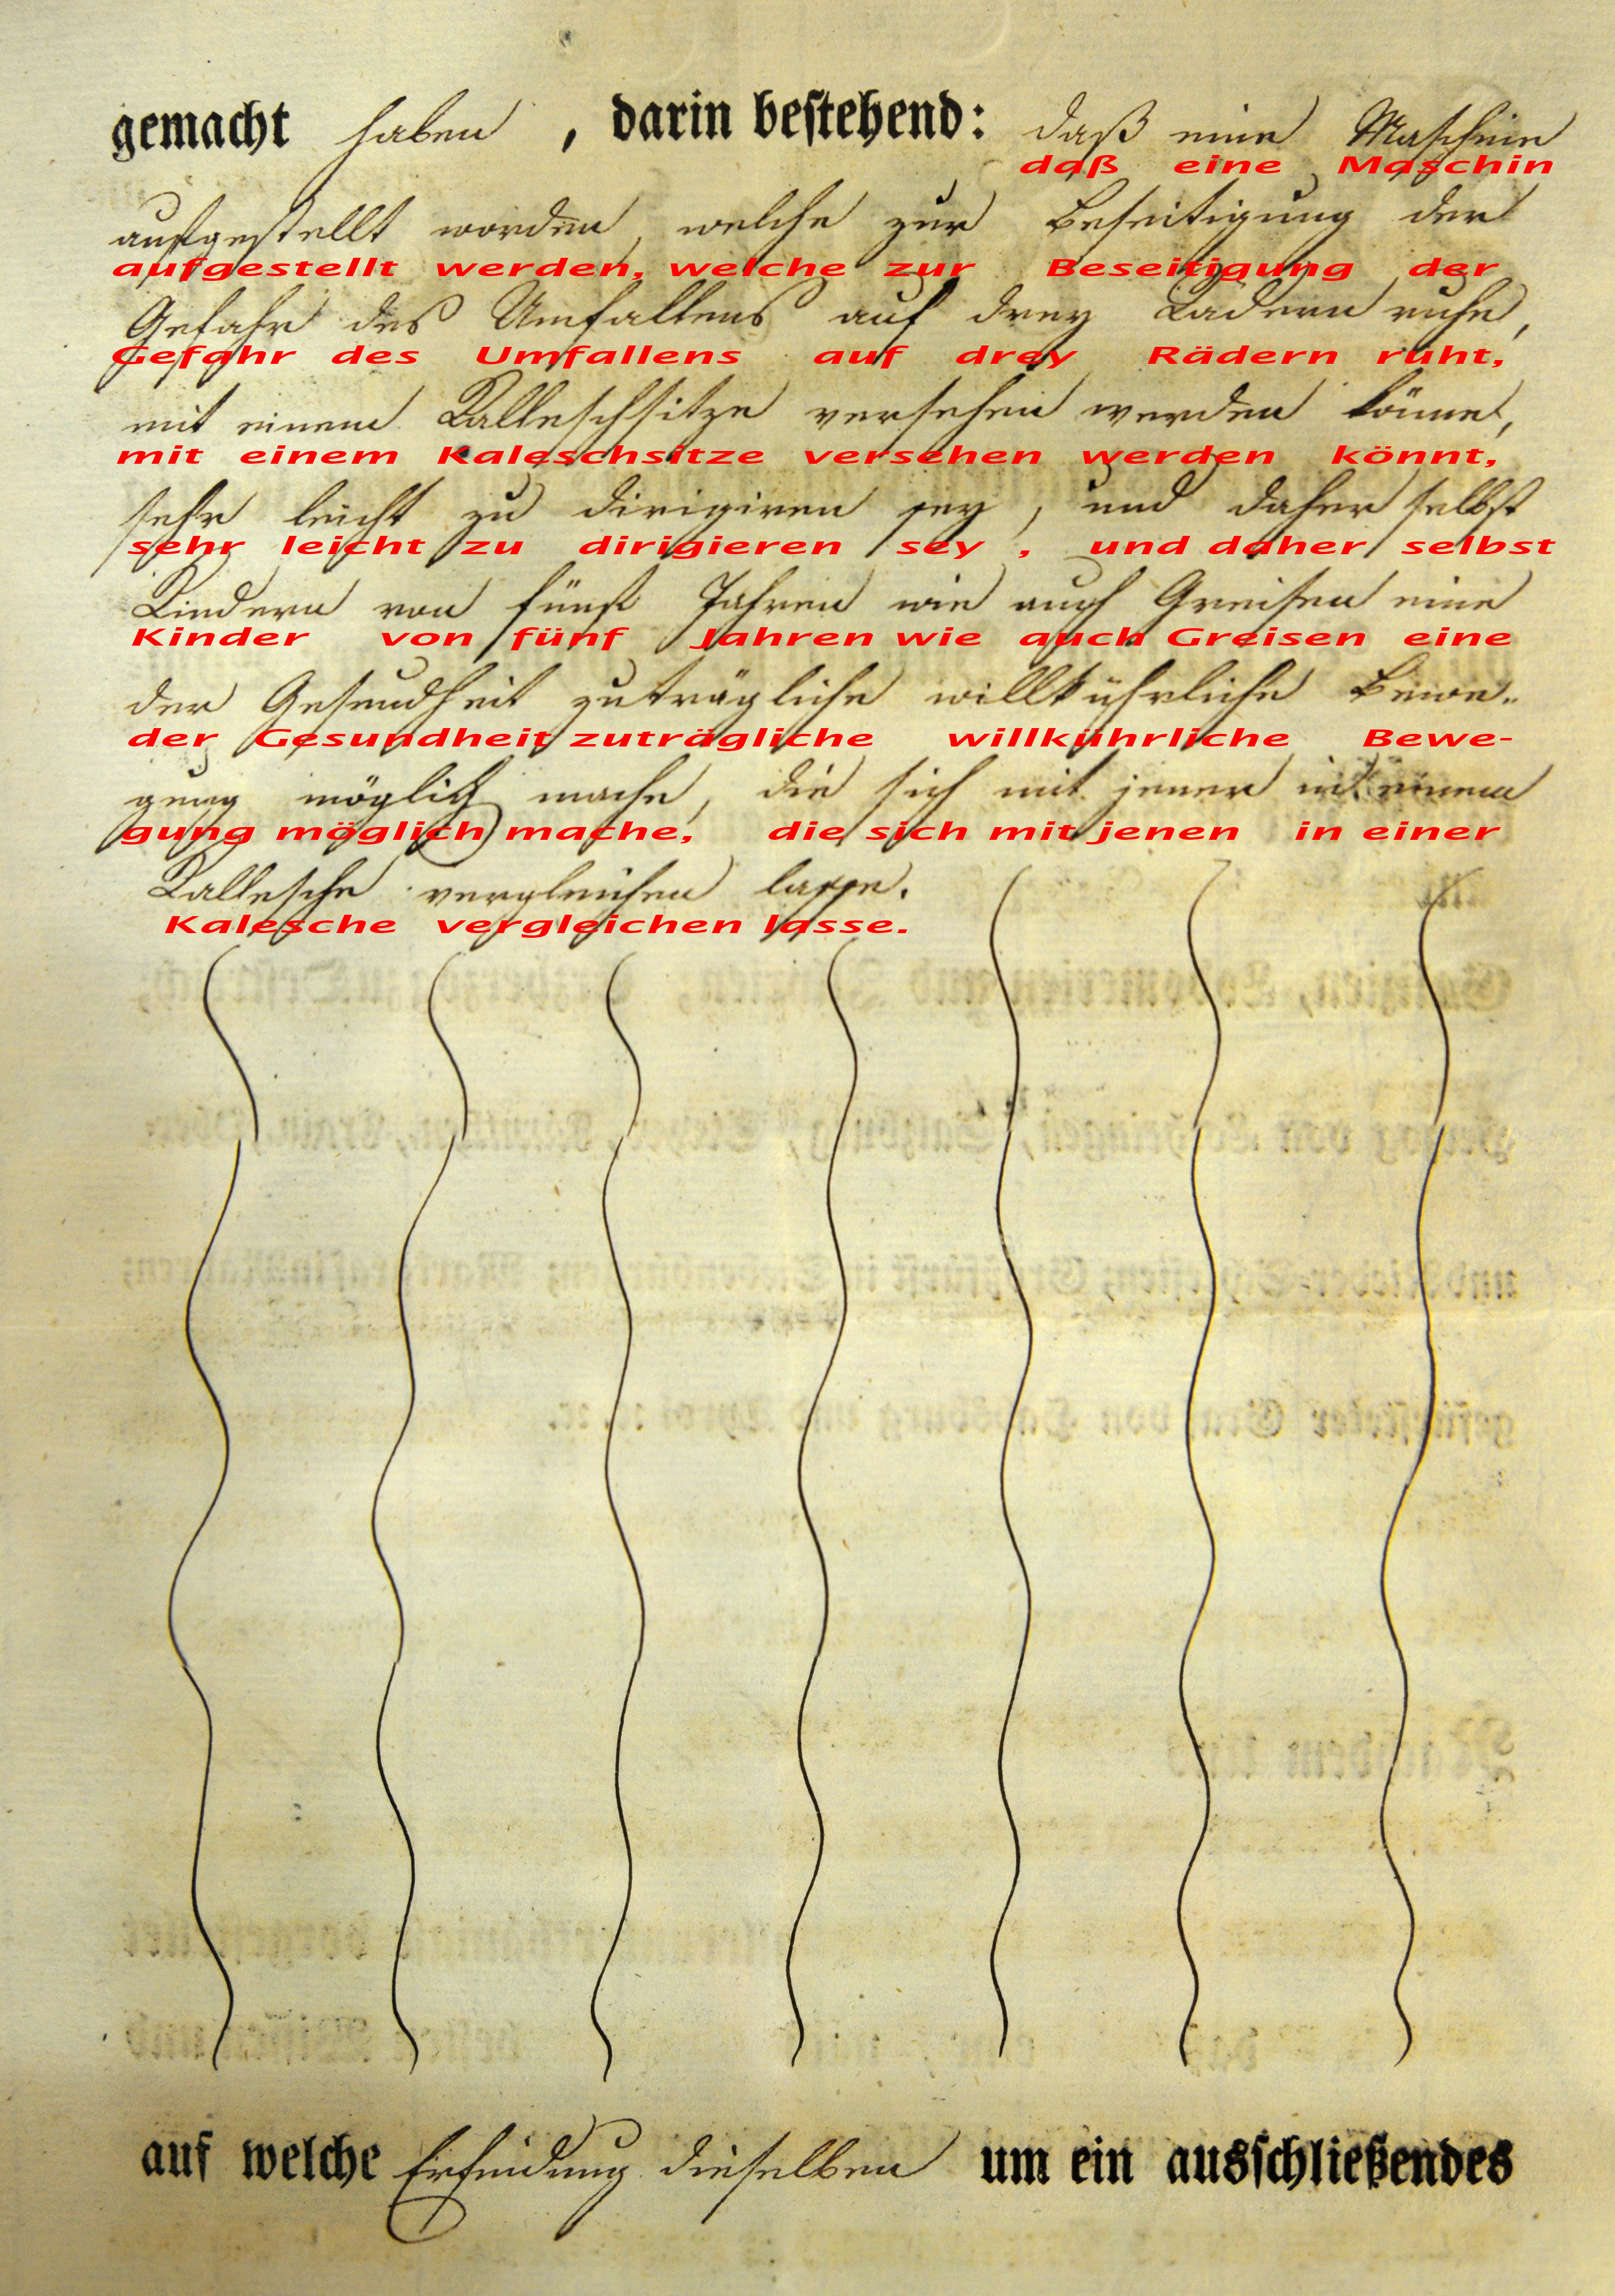 gemacht haben , darin bestehend: daß eine Maschin
daß eine Maschin
aufgestellt worden, welche zur Beseitigung der
aufgestellt werden, welche zur Beseitigung der
Gefahr des Umfallens auf drey Rädern ruhe,
Gefahr des Umfallens auf drey Rädern ruht,
mit einem Kalleschsitze versehen werden könne,
mit einem Kaleschsitze versehen werden könnt,
sehr leicht zu dirigiren sey, und daher selbst
sehr leicht zu dirigieren sey , und daher selbst
Kindern von fünf Jahren wie auch Greisen eine
Kinder von fünf Jahren wie auch Greisen eine
der Gesundheit zuträgliche willkührliche Bewe-
der Gesundheit zuträgliche willkührliche Bewe-
gung möglich mache, die sich mit jener in einem
gung möglich mache, die sich mit jenen in einer
Kallesche vergleichen lasse.
Kalesche vergleichen lasse.
auf welche Erfindung dieselben um ein ausschließendes